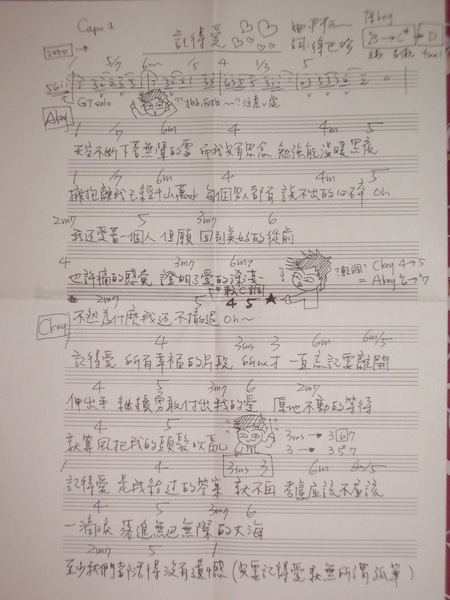 Capo 1
記得愛
詞:
Intro →
1 5/7 6m /5 4 1/3 5
GTsolo
Akey
1 /7 6m 4 4m 5
天空不斷下著無聲的雪 而我只有思念 勉強能溫暖黑夜
1 /7 6m 4 4m 5
擁抱離我已經千山萬水 每個男人都有說不出的心碎 Oh
2m7 5 3m7 6
我還愛著一個人 但願回到美好的從前
4 3m7 6m7
也許痛的感覺 證明了愛的深淺
轉C調 4 5 ★
?轉調?
Ckey 4→5
= Akey
2m7 5
不然為什麼我還不撤退 Oh~
Ckey
1 4 3sus 3 6m 6m/5
記得愛 所有幸福的片段 所以才一直忘記要離開
4 5 3m7 6 2m7
伸出手 繼續勇敢付出我的愛 原地不動的等待
4 5
就算風把我的頭髮吹亂
3sus → 3 6 7
3 → 3 5 7
1 4 3sus 3 6m 6m/5
記得愛 是我給過的答案 就不再考慮應該不應該
4 5 3m7 6
一滴淚 落進無邊無際的大海
2m7 5 1
至少我們都活得沒有遺憾 (只要記得愛就無所謂孤單)